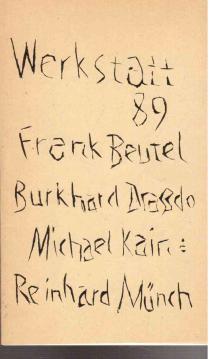 Werkstatt
89
Frank Beutel
Burkhard Dragdo
Michael Kain:
Reinhard Münch